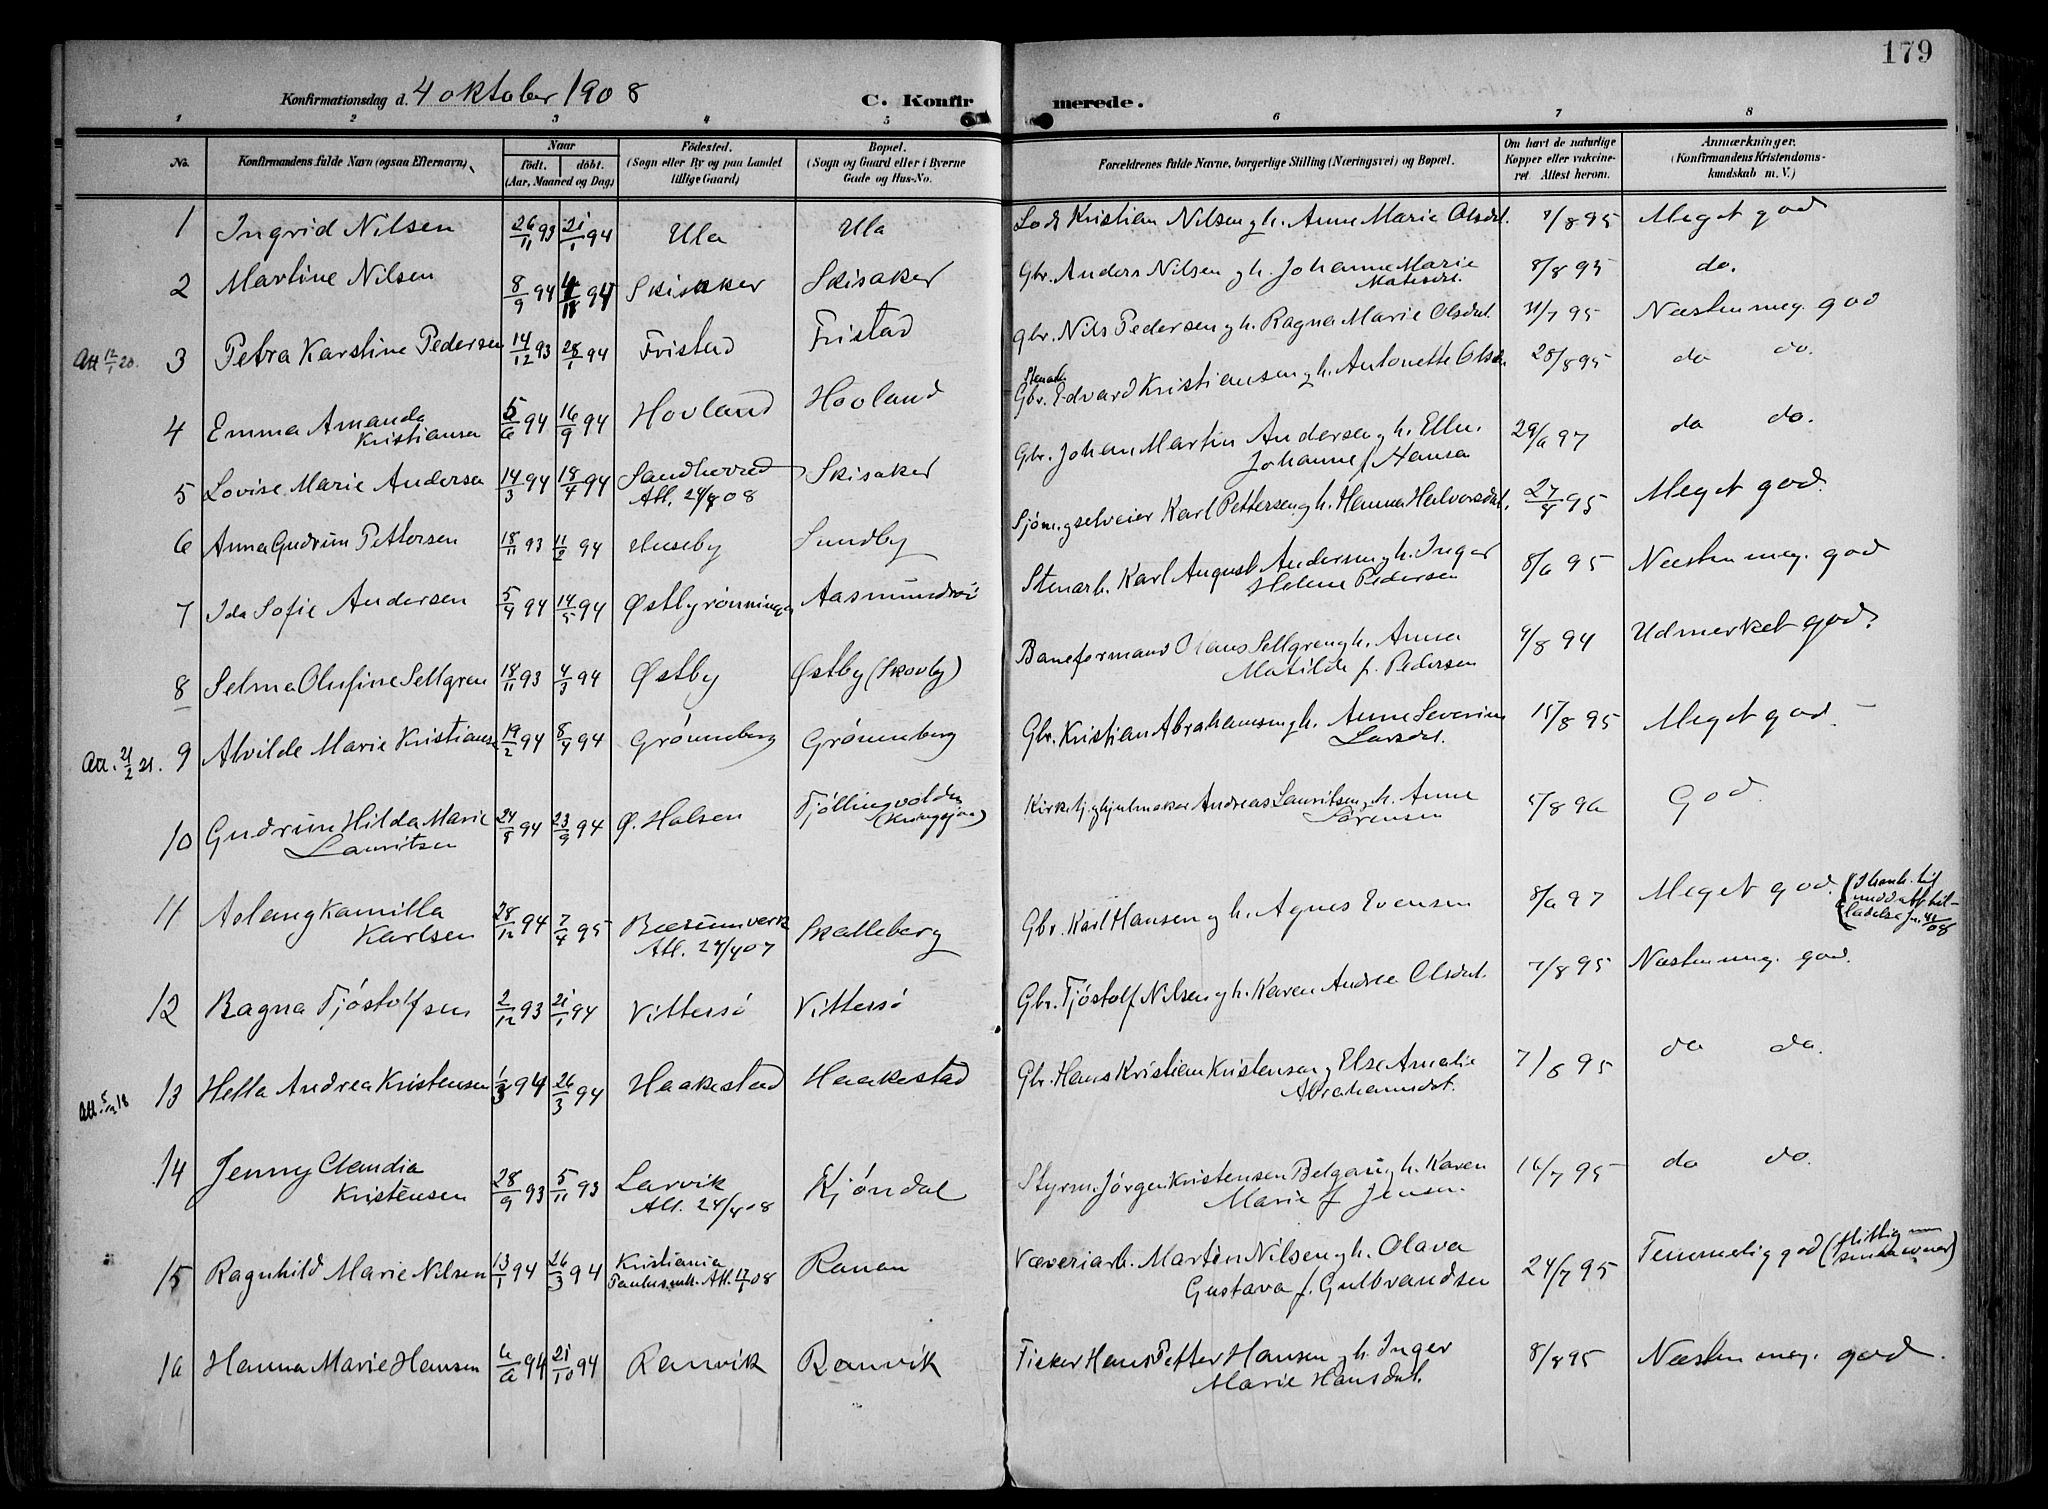 179
Konfirmationsdag d. 4 oktober 1908
C. Konfirmerede.
1 2 3 4 5 6 7 8
No.
Konfirmandens fulde Navn (ogsaa Efternavn).
Naar
födt. döbt.
(Aar, Maaned og Dag)
Födested.
(Sogn eller By og paa Landet
tillige Gaard)
Bopæl.
(Sogn og Gaard eller i Byerne
Gade og Hus-No.
Forældrenes fulde Navne, borgerlige Stilling (Næringsvei) og Bopæl.
Om havt de naturlige
Kopper eller vakcine-
ret Attest herom.
Anmærkninger.
(Konfirmandens Kristendoms-
kundskab m. V.)
1 Ingrid Nilsen 26/11 93 21/1 94 Ula Ula Lods Kristian Nilsen g h. Anne Marie Olsdt. 7/8 95 Meget god
2 Martine Nilsen 8/9 94 94 Skisaker Skisaker Gbr. Anders Nilsen g h. Johanne Marie 8/8 95 do.
Att 12/1 20. 3 Petra Karstine Pedersen 14/12 93 28/1 94 Fristad Fristad Gbr. Nils Pedersen g h. Ragna Marie Olsdt. 31/7 95 Næsten meg. god
4 Emma Amanda
Kristiansen 5/6 94 16/9 94 Hovland Hovland Gbr. Edvard Kristiansen g h. Antonette Olsdt. 28/8 95 do do.
5 Lovise Marie Andersen 14/3 94 18/4 94 Sandherred
Att. 24/8 08 Skisaker Gbr. Johan Martin Andersen g h. Ellen
Johanne f. Hansen 29/6 97 do do.
6 Anna Gudrun Pettersen 18/11 93 11/2 94 Huseby Sundby Sjøm. g selveier Karl Pettersen g h. Hanna Halvorsdat. 27/8 95 Meget god.
7 Ida Sofie Andersen 5/4 94 14/5 94 Østbyrønningen Aasmundrøi Stenarb. Karl August Andersen g h. Inger
Helene Pedersen 8/6 95 Næsten meg. god
8 Selma Olufine Sellgren 18/11 93 4/3 94 Østby Østby (Skovly) Baneformand Olaus Sellgren g h. Anna
Matilde f. Pedersen 9/8 94 Udmerket god.
Att. 21/2 21. 9 Alvilde Marie Kristiansen 19/2 94 8/4 94 Grønneberg Grønneberg Gbr. Kristian Abrahamsen g h. Anne Severine
Larsdt. 15/8 95 Meget god.
10 Gudrun Hilda Marie
Lauritsen 24/8 94 23/9 94 Ø. Halsen Tjøllingvolden
Kirketj. g hjulmaker Andreas Lauritsen g h. Anne
Sørensen 5/8 96 God.
11 Aslaug Kamilla
Karlsen 28/12 94 7/4 95 Bærumsverk
Att. 24/4 07 Skalleberg Gbr. Karl Hansen g h. Agnes Evensen 8/6 97 Meget god.
12 Ragna Tjøstolfsen 2/12 93 21/1 94 Vittersø Vittersø Gbr. Tjøstolf Nilsen g h. Karen Andrea Olsdat. 7/8 95 Næsten meg. god.
Att. 18 13 Hella Andrea Kristensen 1/3 94 26/3 94 Haakestad Haakestad Gbr. Hans Kristian Kristensen g Else Amalie
Abrahamsdt. 7/8 95 do do.
14 Jenny Claudia
Kristensen 28/9 93 5/11 93 Larvik
Att. 24/4 08 Kjøndal Styrm. Jørgen Kristensen Belgau g h. Karen
Marie f Jensen. 16/7 95 do do.
15 Ragnhild Marie Nilsen 13/1 94 26/3 94 Kristiania
Paulus mh. Att. 17/7 08 Ranan Væveriarb. Martin Nilsen g h. Olava
Gustava f. Gulbrandsen 24/7 95 Temmelig god (flittig
16 Hanna Marie Hansen 6/6 94 21/10 94 Ranvik Ranvik Fisker Hans Petter Hansen g h. Inger
Marie Hansdat. 8/8 95 Næsten meg. god.